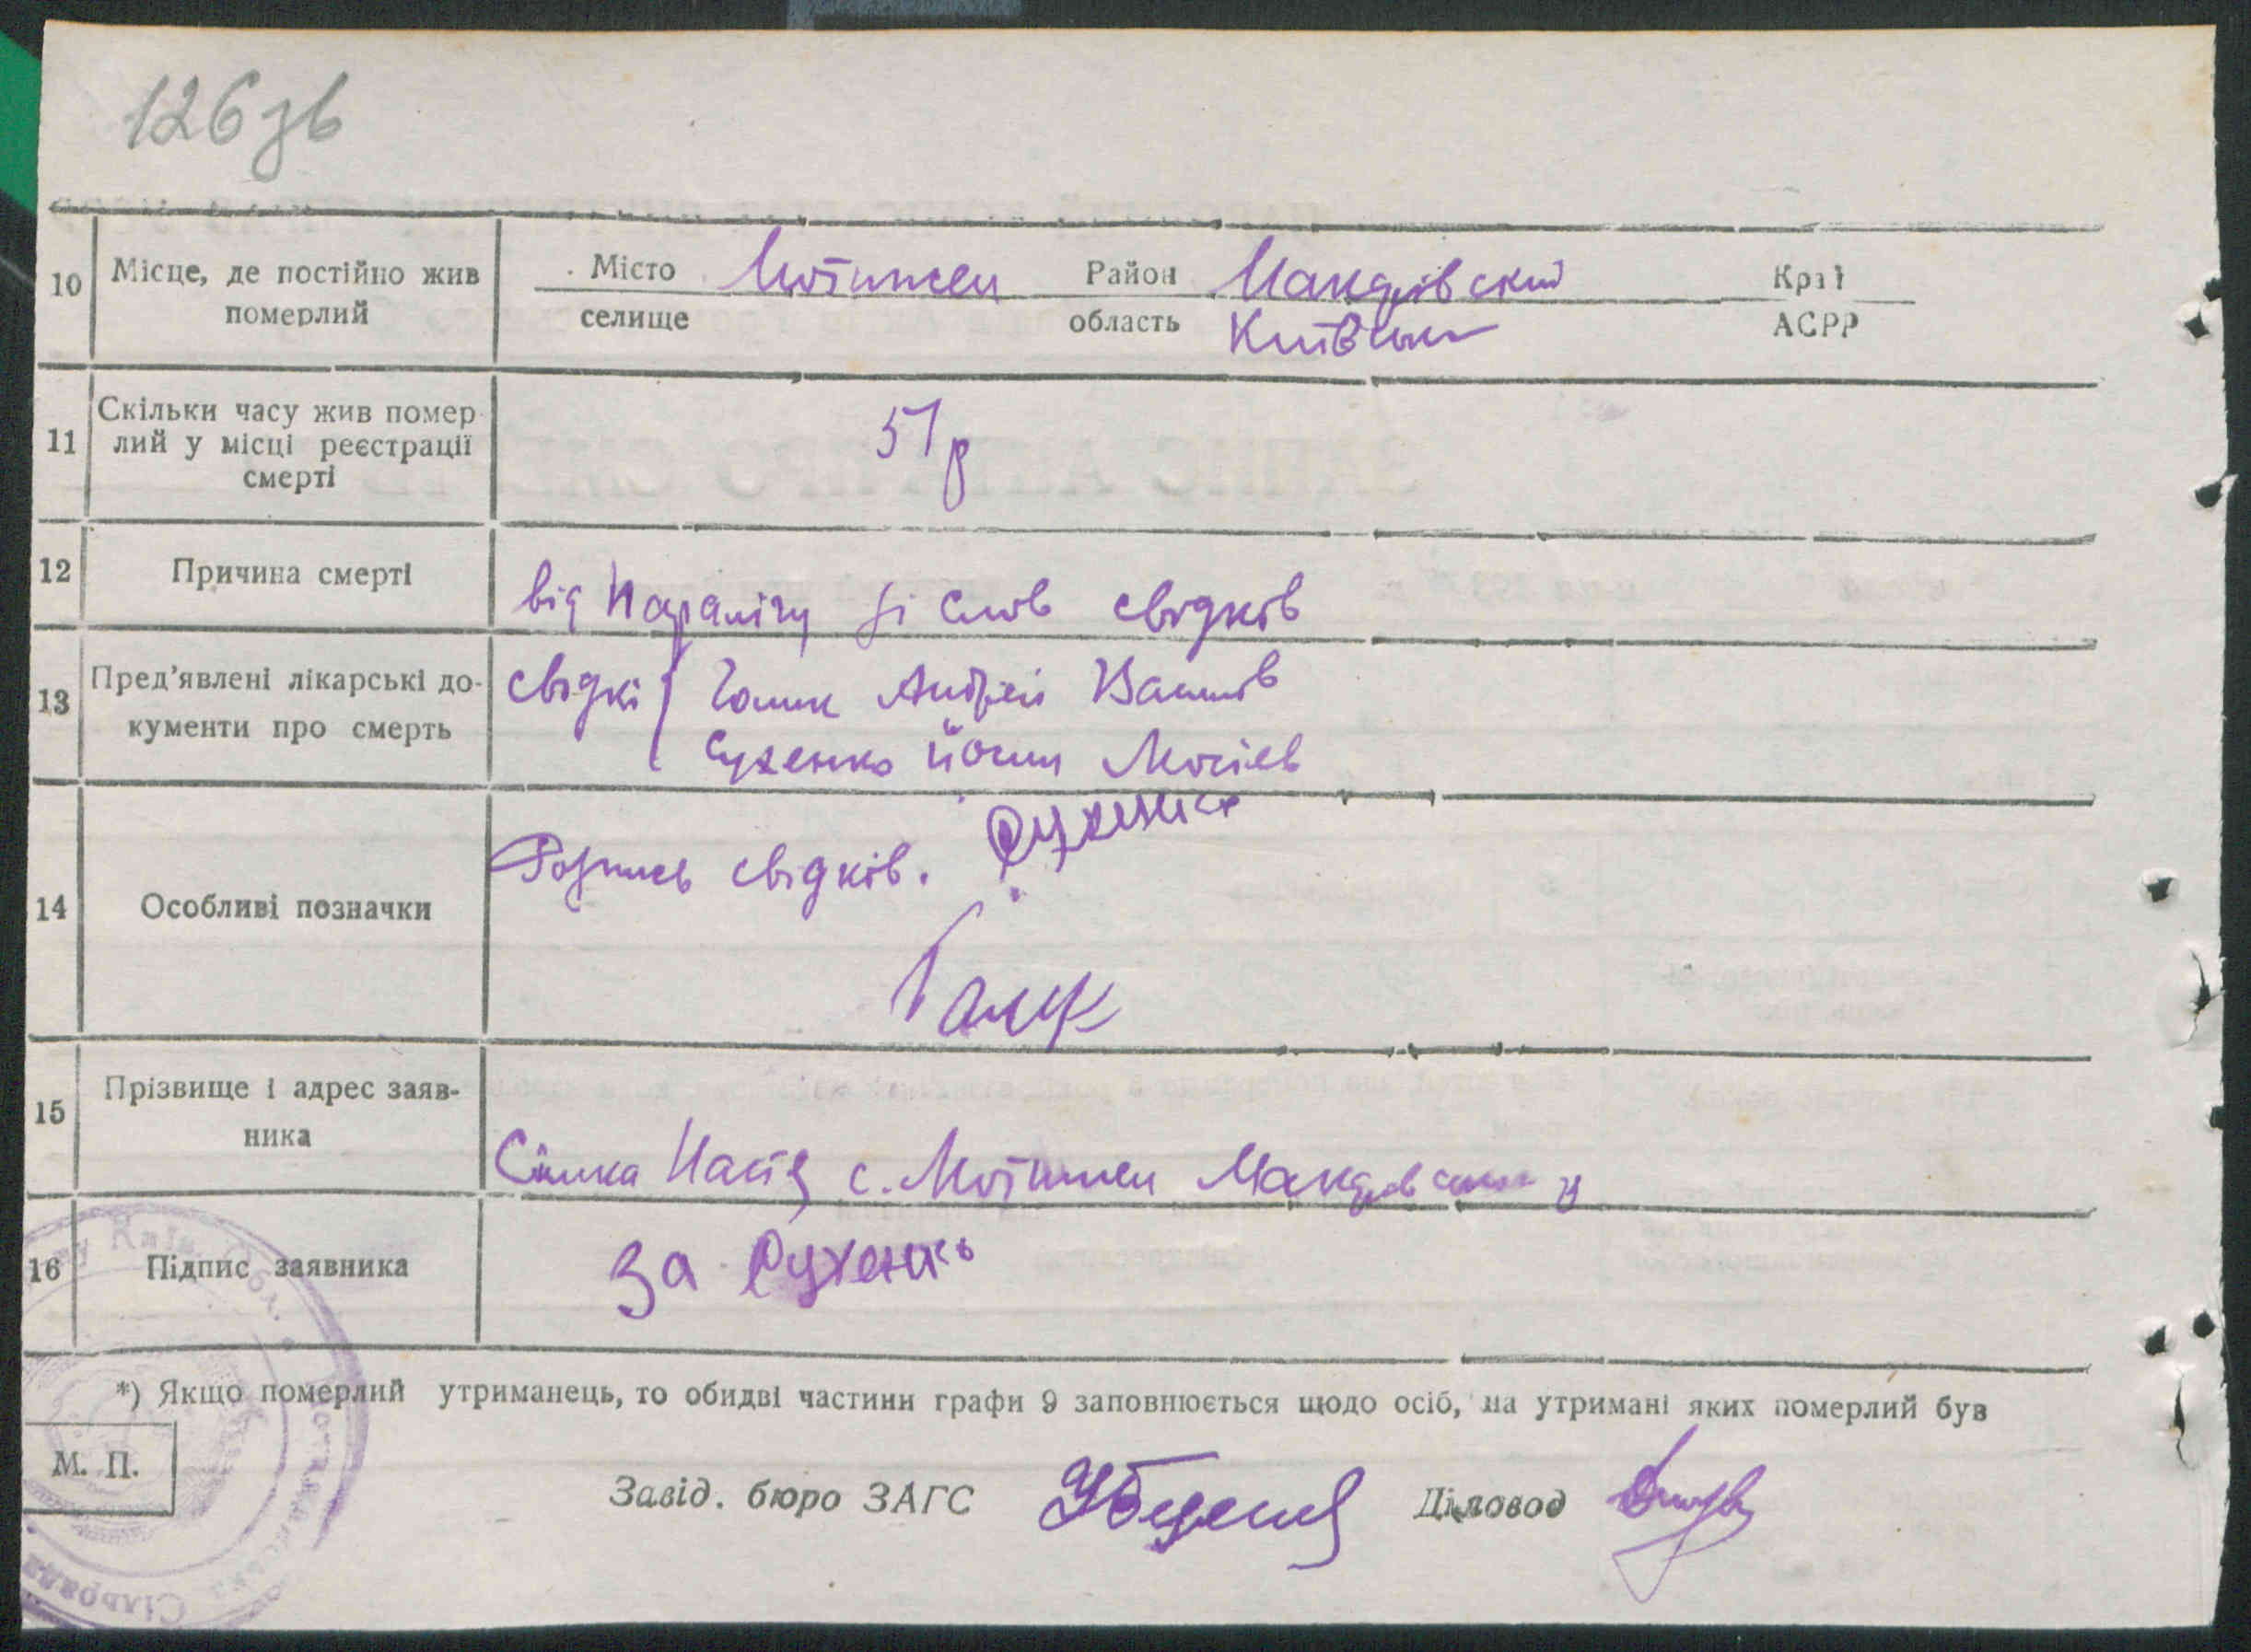 126 зв
10 Місце, де постійно жив померлий
Місто Мотижен Район Макарівский Край
селище область Київська АСРР
11 Скільки часу жив помер
лий у місці реєстрації
смерті
51 р
12 Причина смерті
від Паралічу зі слов свідків
13 Пред'явлені лікарські до-
кументи про смерть
свідкі Галик Андрей
Сухенко Йосип Мосіев
14 Особливі позначки
Розпись свідків. Сухенко
Галик
15 Прізвище і адрес заяв-
ника
Настя с. Мотижен Макарівськ р
16 Підпис заявника
За Сухенко
*) Якщо померлий утриманець, то обидві частини графи 9 заповнюється щодо осіб, на утримані яких померлий був
М. П.
Завід. бюро ЗАГС Діловод
Сільрада